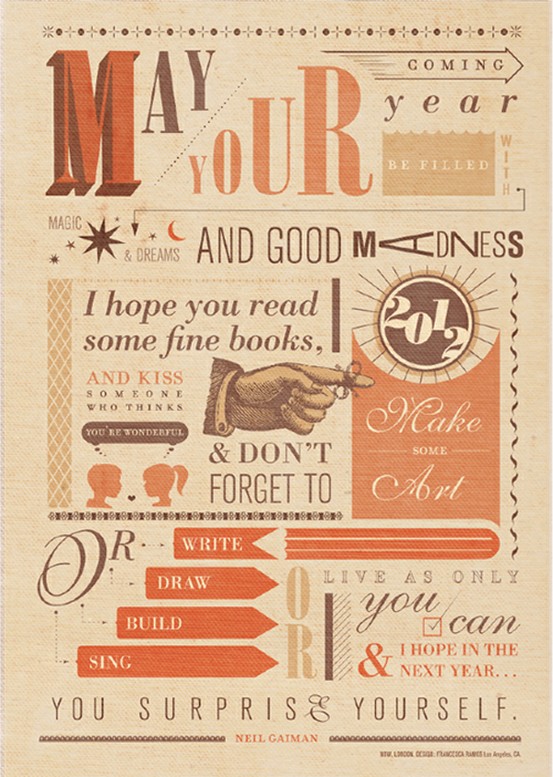 MAY
YOUR
COMING
year
BE FILLED
WITH
MAGIC
& DREAMS
AND GOOD MADNESS
I hope you read
some fine books,
AND KISS
SOMEONE
WHO THINKS
YOU'RE WONDERFUL
& DON'T
FORGET TO
2012
Make
SOME
Art
OR
WRITE
DRAW
BUILD
SING
OR
LIVE AS ONLY
you
can
& I HOPE IN THE
NEXT YEAR...
YOU SURPRISE YOURSELF.
NEIL GAIMAN
LONDON. DESIGN: FRANCESCA RAMOS Los Angeles, CA.